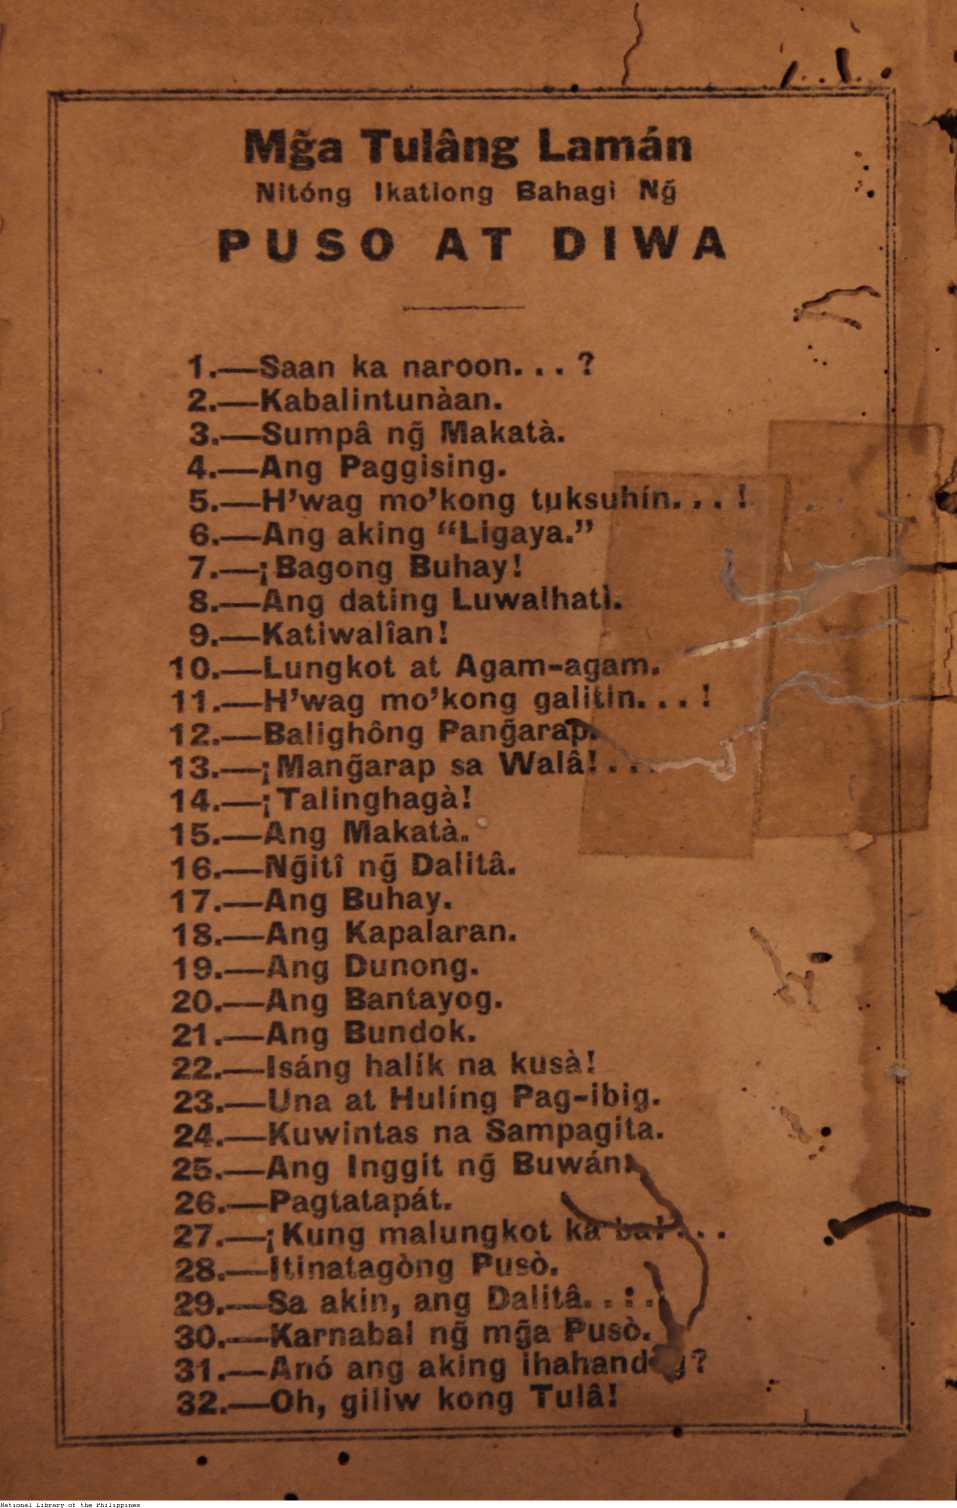 Mg̃a Tulâng Lamán
Nitóng Ikatlong Bahagi Ng̃
PUSO AT DIWA
1.—Saan ka naroon. . . ?
2.—Kabalintunàan.
3.—Sumpâ ng̃ Makatà.
4.—Ang Paggising.
5.—H'wag mo'kong tuksuhín. . . !
6.—Ang aking "Ligaya."
7.—¡Bagong Buhay!
8.—Ang dating Luwalhatì.
9.—Katiwalîan!
10.—Lungkot at Agam-agam.
11.—H'wag mo'kong galitin. . . !
12.—Balighông Pang̃arap.
13.—¡Mang̃arap sa Walâ! . . .
14.—¡Talinghagà!
15.—Ang Makatà.
16.—Ng̃itî ng̃ Dalitâ.
17.—Ang Buhay.
18.—Ang Kapalaran.
19.—Ang Dunong.
20.—Ang Bantayog.
21.—Ang Bundok.
22.—Isáng halík na kusà!
23.—Una at Hulíng Pag-ibig.
24.—Kuwintas na Sampagita.
25.—Ang Inggit ng̃ Buwán.
26.—Pagtatapát.
27.—¡Kung malungkot ka ba! . . .
28.—Itinatagòng Pusò.
29.—Sa akin, ang Dalitâ. . . .
30.—Karnabal ng̃ mg̃a Pusò.
31.—Anó ang aking ihahandóg?
32.—Oh, giliw kong Tulâ!
National Library of the Philippines